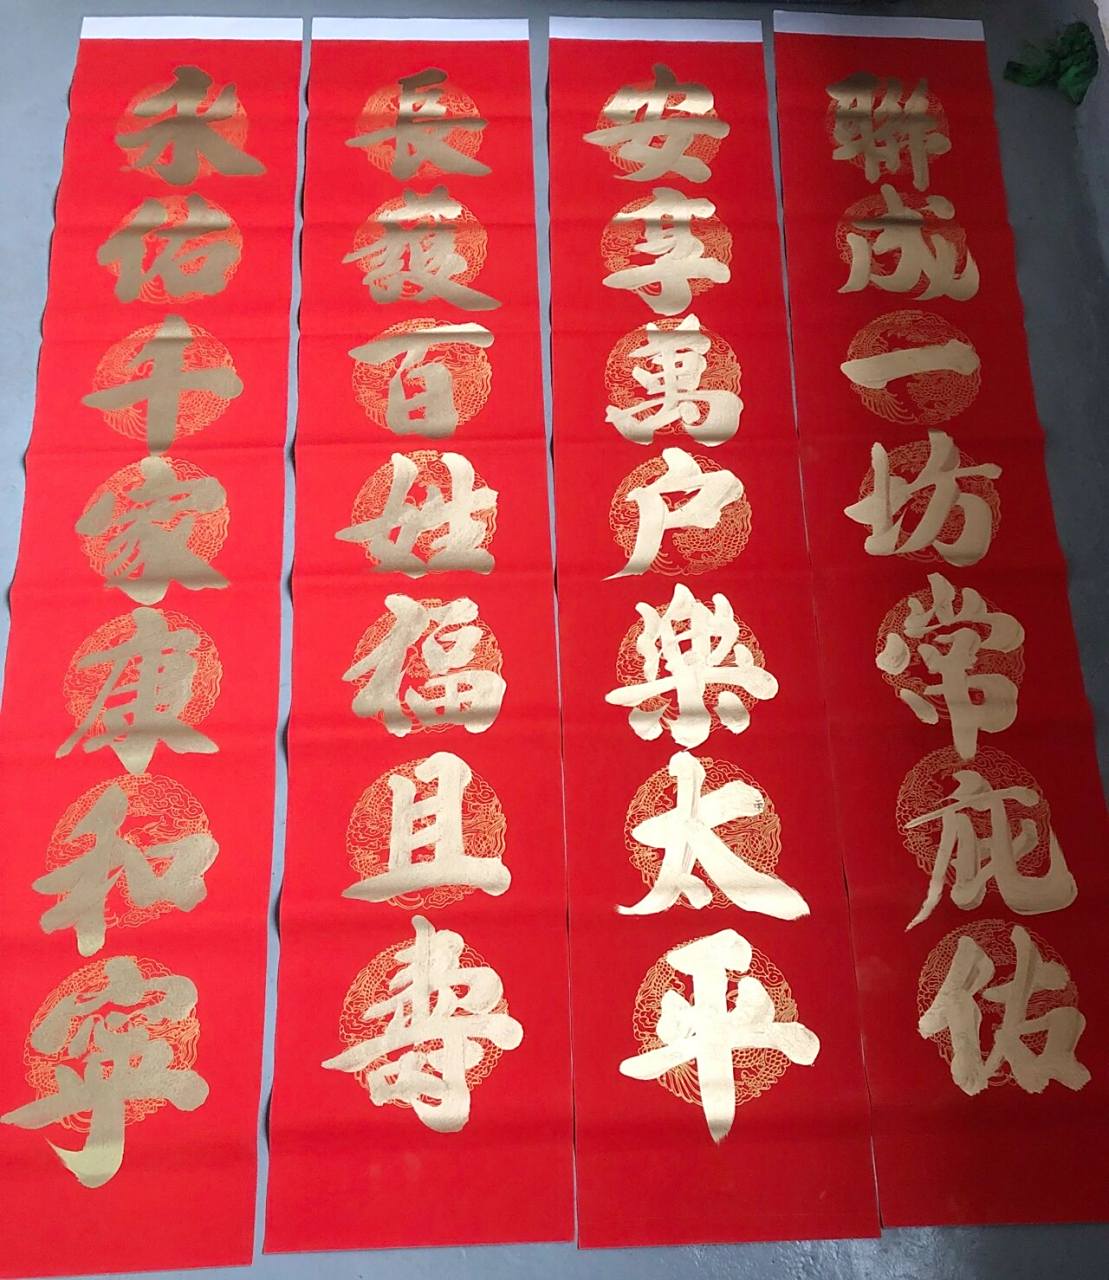 聯成一坊常庇佑
安享萬户樂太平
長護百姓福且壽
永佑千家康和寧